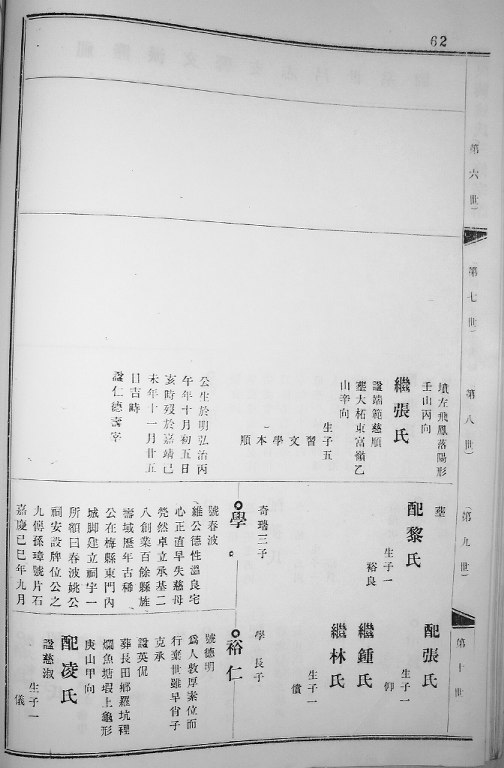 62
第六世
第七世
第八世
第九世
第十世
墳左飛鳳落陽形
壬山丙向
繼張氏
諡端範慈順
塟大柘東富嶺乙
山辛向
生子五
習文學本順
公生於明弘治丙
午年十月初五日
亥時歿於嘉靖己
未年十一月廿五
日吉時
諡仁德壽寧
塟
配黎氏
生子一
裕良
奇瑞三子
學
號春波
維公德性溫良宅
心正直早失慈母
煢然卓立承基二
八創業百餘縣旌
壽域歷年古稀
公在梅縣東門內
城脚建立祠宇一
所額曰春波姚公
祠安設牌位公之
九傳孫璋號片石
嘉慶已巳年九月
配張氏
生子一
仰
繼鍾氏
繼林氏
生子一
償
學長子
裕仁
號德明
為人敦厚素位而
行棄世雖早肯子
克承
諡英侃
葬長田鄉羅坑裡
燗魚塘塅上龜形
庚山甲向
配凌氏
諡慈淑
生子一
儀